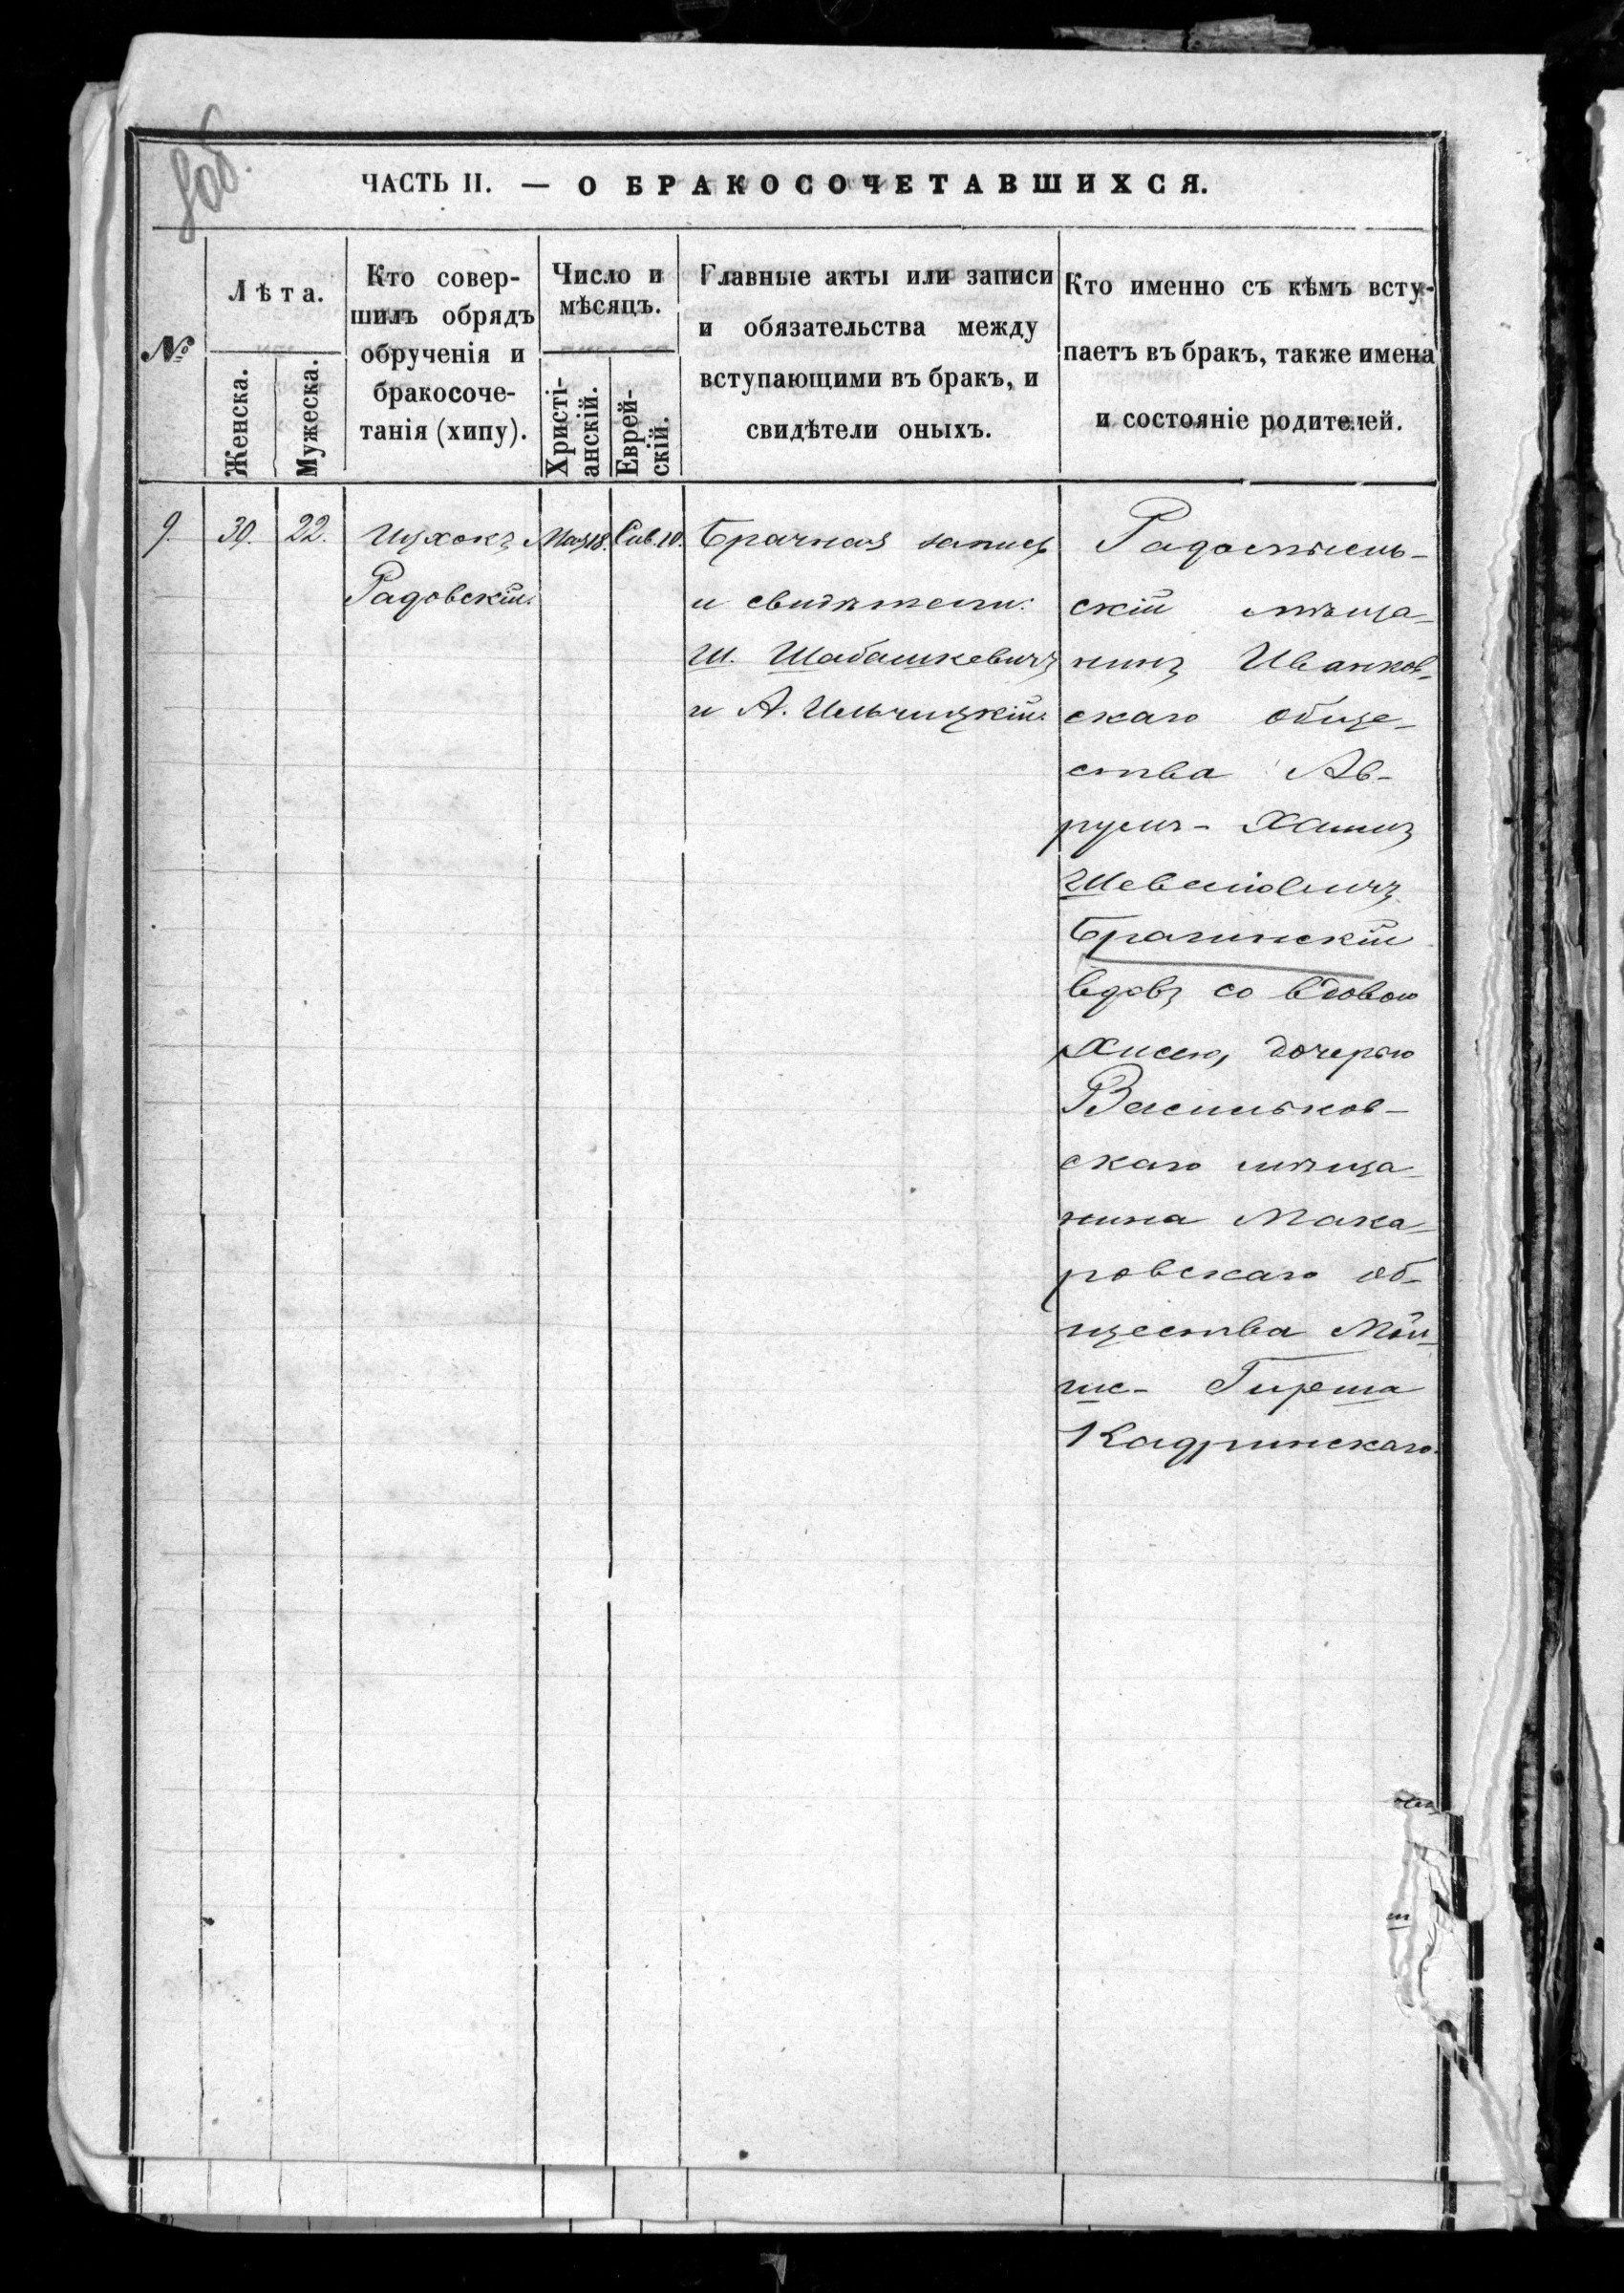 8об.
ЧАСТЬ II. — О БРАКОСОЧЕТАВШИХСЯ.
№
Лѣта.
Женска.
Мужеска.
Кто совер-
шилъ обрядъ
обрученія и
бракосоче-
танія (хипу).
Число и
мѣсяцъ.
Христі-
анскій.
Еврей-
скій.
Главные акты или записи
и обязательства между
вступающими въ бракъ, и
свидѣтели оныхъ.
Кто именно съ кѣмъ всту-
паетъ въ бракъ, также имена
и состояніе родителей.
9.
30.
22.
Ицхокъ
Радовскій.
Мая 18.
Сив. 10.
Брачная запись
и свидѣтели:
Ш. Шабашкевичъ
и А. Ильчицкій.
Радомысль-
скій мѣща-
нинъ Иванков-
скаго обще-
ства Ав-
румъ-Хаимъ
Шевелiовичъ
Брагинскій
вдовъ со вдовою
Хисею, дочерью
Васильков-
скаго мѣща-
нина Мака-
ровскаго об-
щества Мой-
ше-Гирша
Кадринскаго.